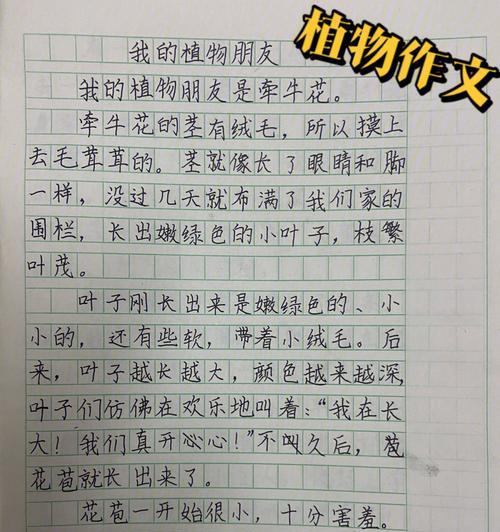 植物作文
我的植物朋友
我的植物朋友是牵牛花。
牵牛花的茎有绒毛，所以摸上
去毛茸茸的。茎就像长了眼睛和脚
一样，没过几天就布满了我们家的
围栏，长出嫩绿色的小叶子，枝繁
叶茂。
叶子刚长出来是嫩绿色的、小
小的，还有些软，带着小绒毛。后
来，叶子越长越大，颜色越来越深，
叶子们仿佛在欢乐地叫着：“我在长
大！我们真开心心！”不叫久后，苞
花苞就长出来了。
花苞一开始很小，十分害羞。